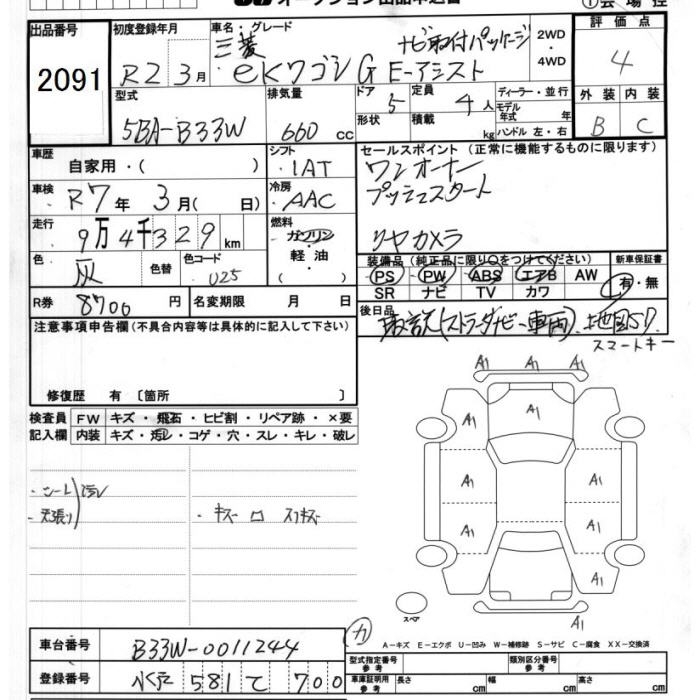 オークション出品申込書
①会場控
出品番号 2091
初度登録年月 R2 3月
車名・グレード 三菱 eKワゴン G E-アシスト ナビ取付パッケージ
2WD ・ 4WD
評価点 4
外装 B 内装 C
型式 5BA-B33W
排気量 660 cc
ドア 5 形状
定員 4人 積載 kg
ディーラー・並行
モデル年式 年
ハンドル 左・右
車歴 自家用・( )
シフト IAT
車検 R7年 3月( 日)
冷房 AAC
走行 9万4千329km
燃料 ガソリン ・ 軽油 ・ ( )
色 灰 色替 色コード U25
R券 8700円 名変期限 月 日
セールスポイント (正常に機能するものに限ります)
ワンオーナー
プッシュスタート
リヤカメラ
装備品 (純正品に限り○をつけてください) 新車保証書
PS PW ABS エアB AW 有・無
SR ナビ TV カワ
後日品 取説(スライダーナビー車両) 地図SD
スマートキー
注意事項申告欄(不具合内容等は具体的に記入して下さい)
修復歴 有 〔箇所 〕
検査員 FW キズ・飛石・ヒビ割・リペア跡・×要
記入欄 内装 キズ・汚レ・コゲ・穴・スレ・キレ・破レ
・シート 汚レ
・天張り
・キズ ロ スリキズ
A1 A1 A1
A1 A1
A1 A1 A1
A1 A1
A1
A1
スペア
カ
A-キズ E-エクボ U-凹み W-補修跡 S-サビ C-腐食 XX-交換済
車台番号 B33W-0011244
登録番号 水戸 581 て 700
型式指定番号 参考 類別区分番号 参考
車庫証明用 参考 長さ cm 幅 cm 高さ cm